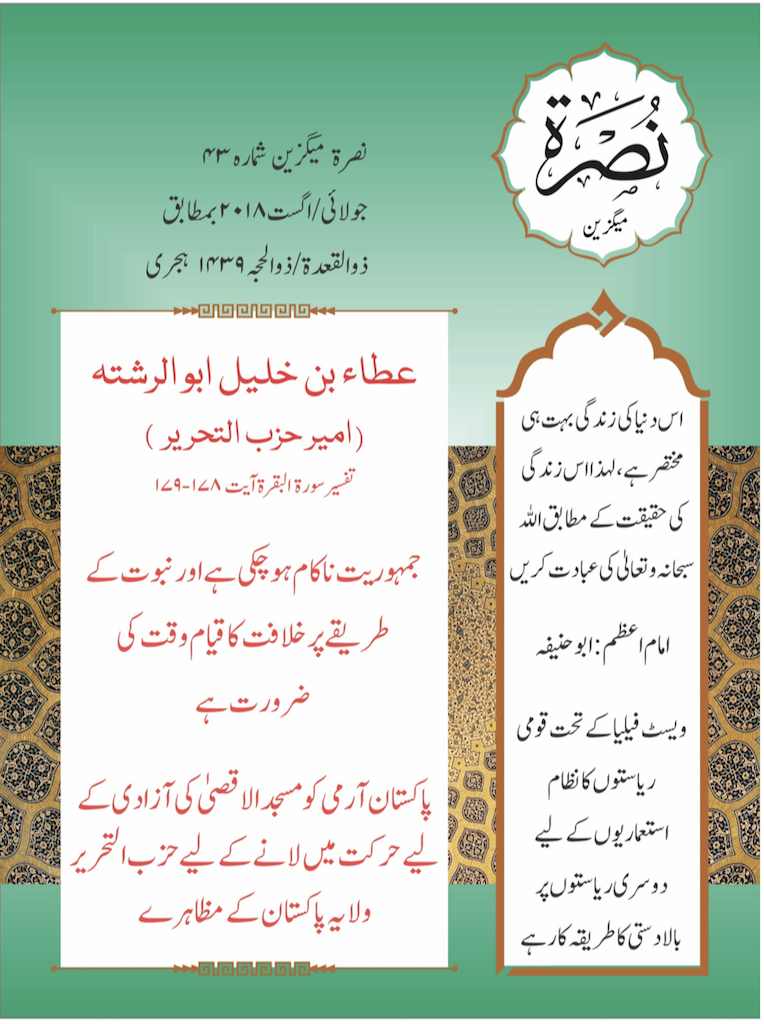 نُصرۃ
میگزین
نصرۃ میگزین شمارہ ۴۳
جولائی/اگست ۲۰۱۸ بمطابق
ذوالقعدۃ/ذوالحجہ ۱۴۳۹ ہجری
عطاء بن خلیل ابو الرشتہ
(امیر حزب التحریر)
تفسیر سورۃ البقرۃ آیت ۱۷۸-۱۷۹
جمہوریت ناکام ہو چکی ہے اور نبوت کے
طریقے پر خلافت کا قیام وقت کی
ضرورت ہے
پاکستان آرمی کو مسجد الاقصیٰ کی آزادی کے
لیے حرکت میں لانے کے لیے حزب التحریر
ولایہ پاکستان کے مظاہرے
اس دنیا کی زندگی بہت ہی
مختصر ہے، لہذا اس زندگی
کی حقیقت کے مطابق اللہ
سبحانہ و تعالیٰ کی عبادت کریں
امام اعظم: ابو حنیفہ
ویسٹ فیلیا کے تحت قومی
ریاستوں کا نظام
استعماریوں کے لیے
دوسری ریاستوں پر
بالادستی کا طریقہ کار ہے